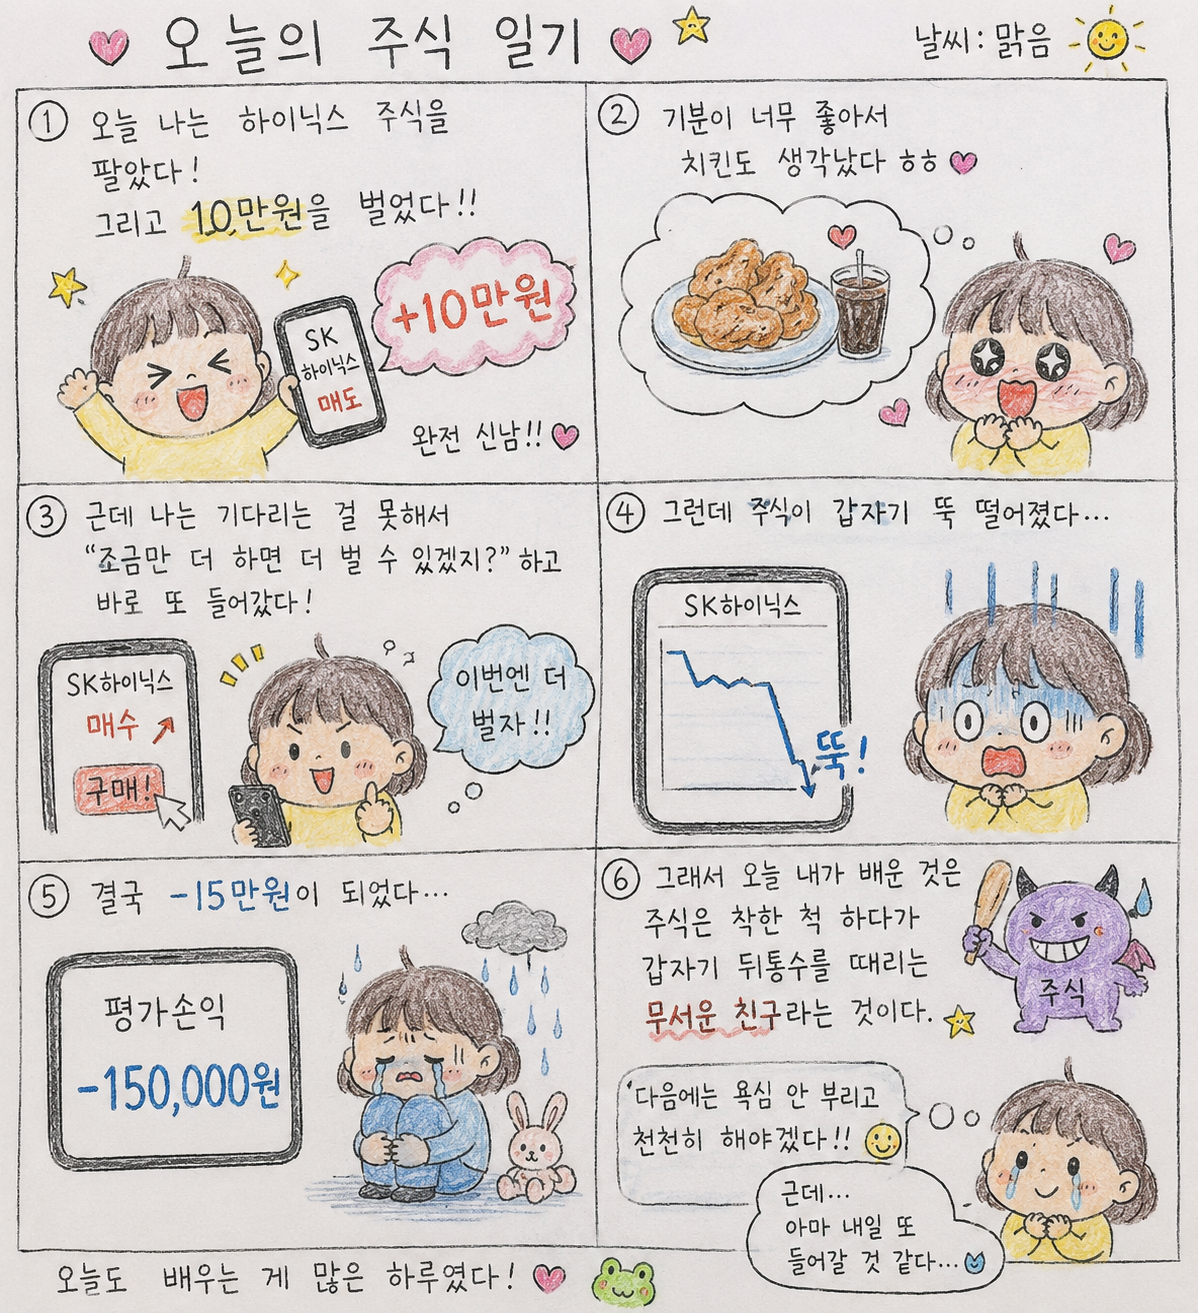 오늘의 주식 일기
날씨 : 맑음
① 오늘 나는 하이닉스 주식을
팔았다!
그리고 10만원을 벌었다!!
SK
하이닉스
매도
+10만원
완전 신남!!
② 기분이 너무 좋아서
치킨도 생각났다 ㅎㅎ
③ 근데 나는 기다리는 걸 못해서
“조금만 더 하면 더 벌 수 있겠지?” 하고
바로 또 들어갔다!
SK하이닉스
매수
구매!
이번엔 더
벌자!!
④ 그런데 주식이 갑자기 뚝 떨어졌다...
SK하이닉스
뚝!
⑤ 결국 -15만원이 되었다...
평가손익
-150,000원
⑥ 그래서 오늘 내가 배운 것은
주식은 착한 척 하다가
갑자기 뒤통수를 때리는
무서운 친구라는 것이다.
주식
'다음에는 욕심 안 부리고
천천히 해야겠다!!
근데...
아마 내일 또
들어갈 것 같다...
오늘도 배우는 게 많은 하루였다!